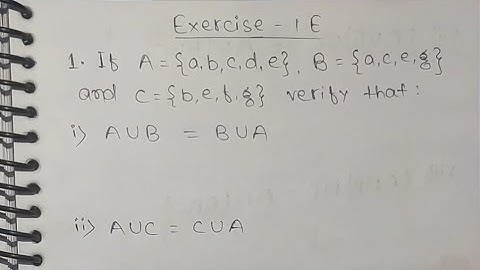 Exercise - 1E
1. If A = {a,b,c,d,e}, B = {a,c,e,g}
and C = {b,e,f,g} verify that:
i) A∪B = B∪A
ii) A∪C = C∪A